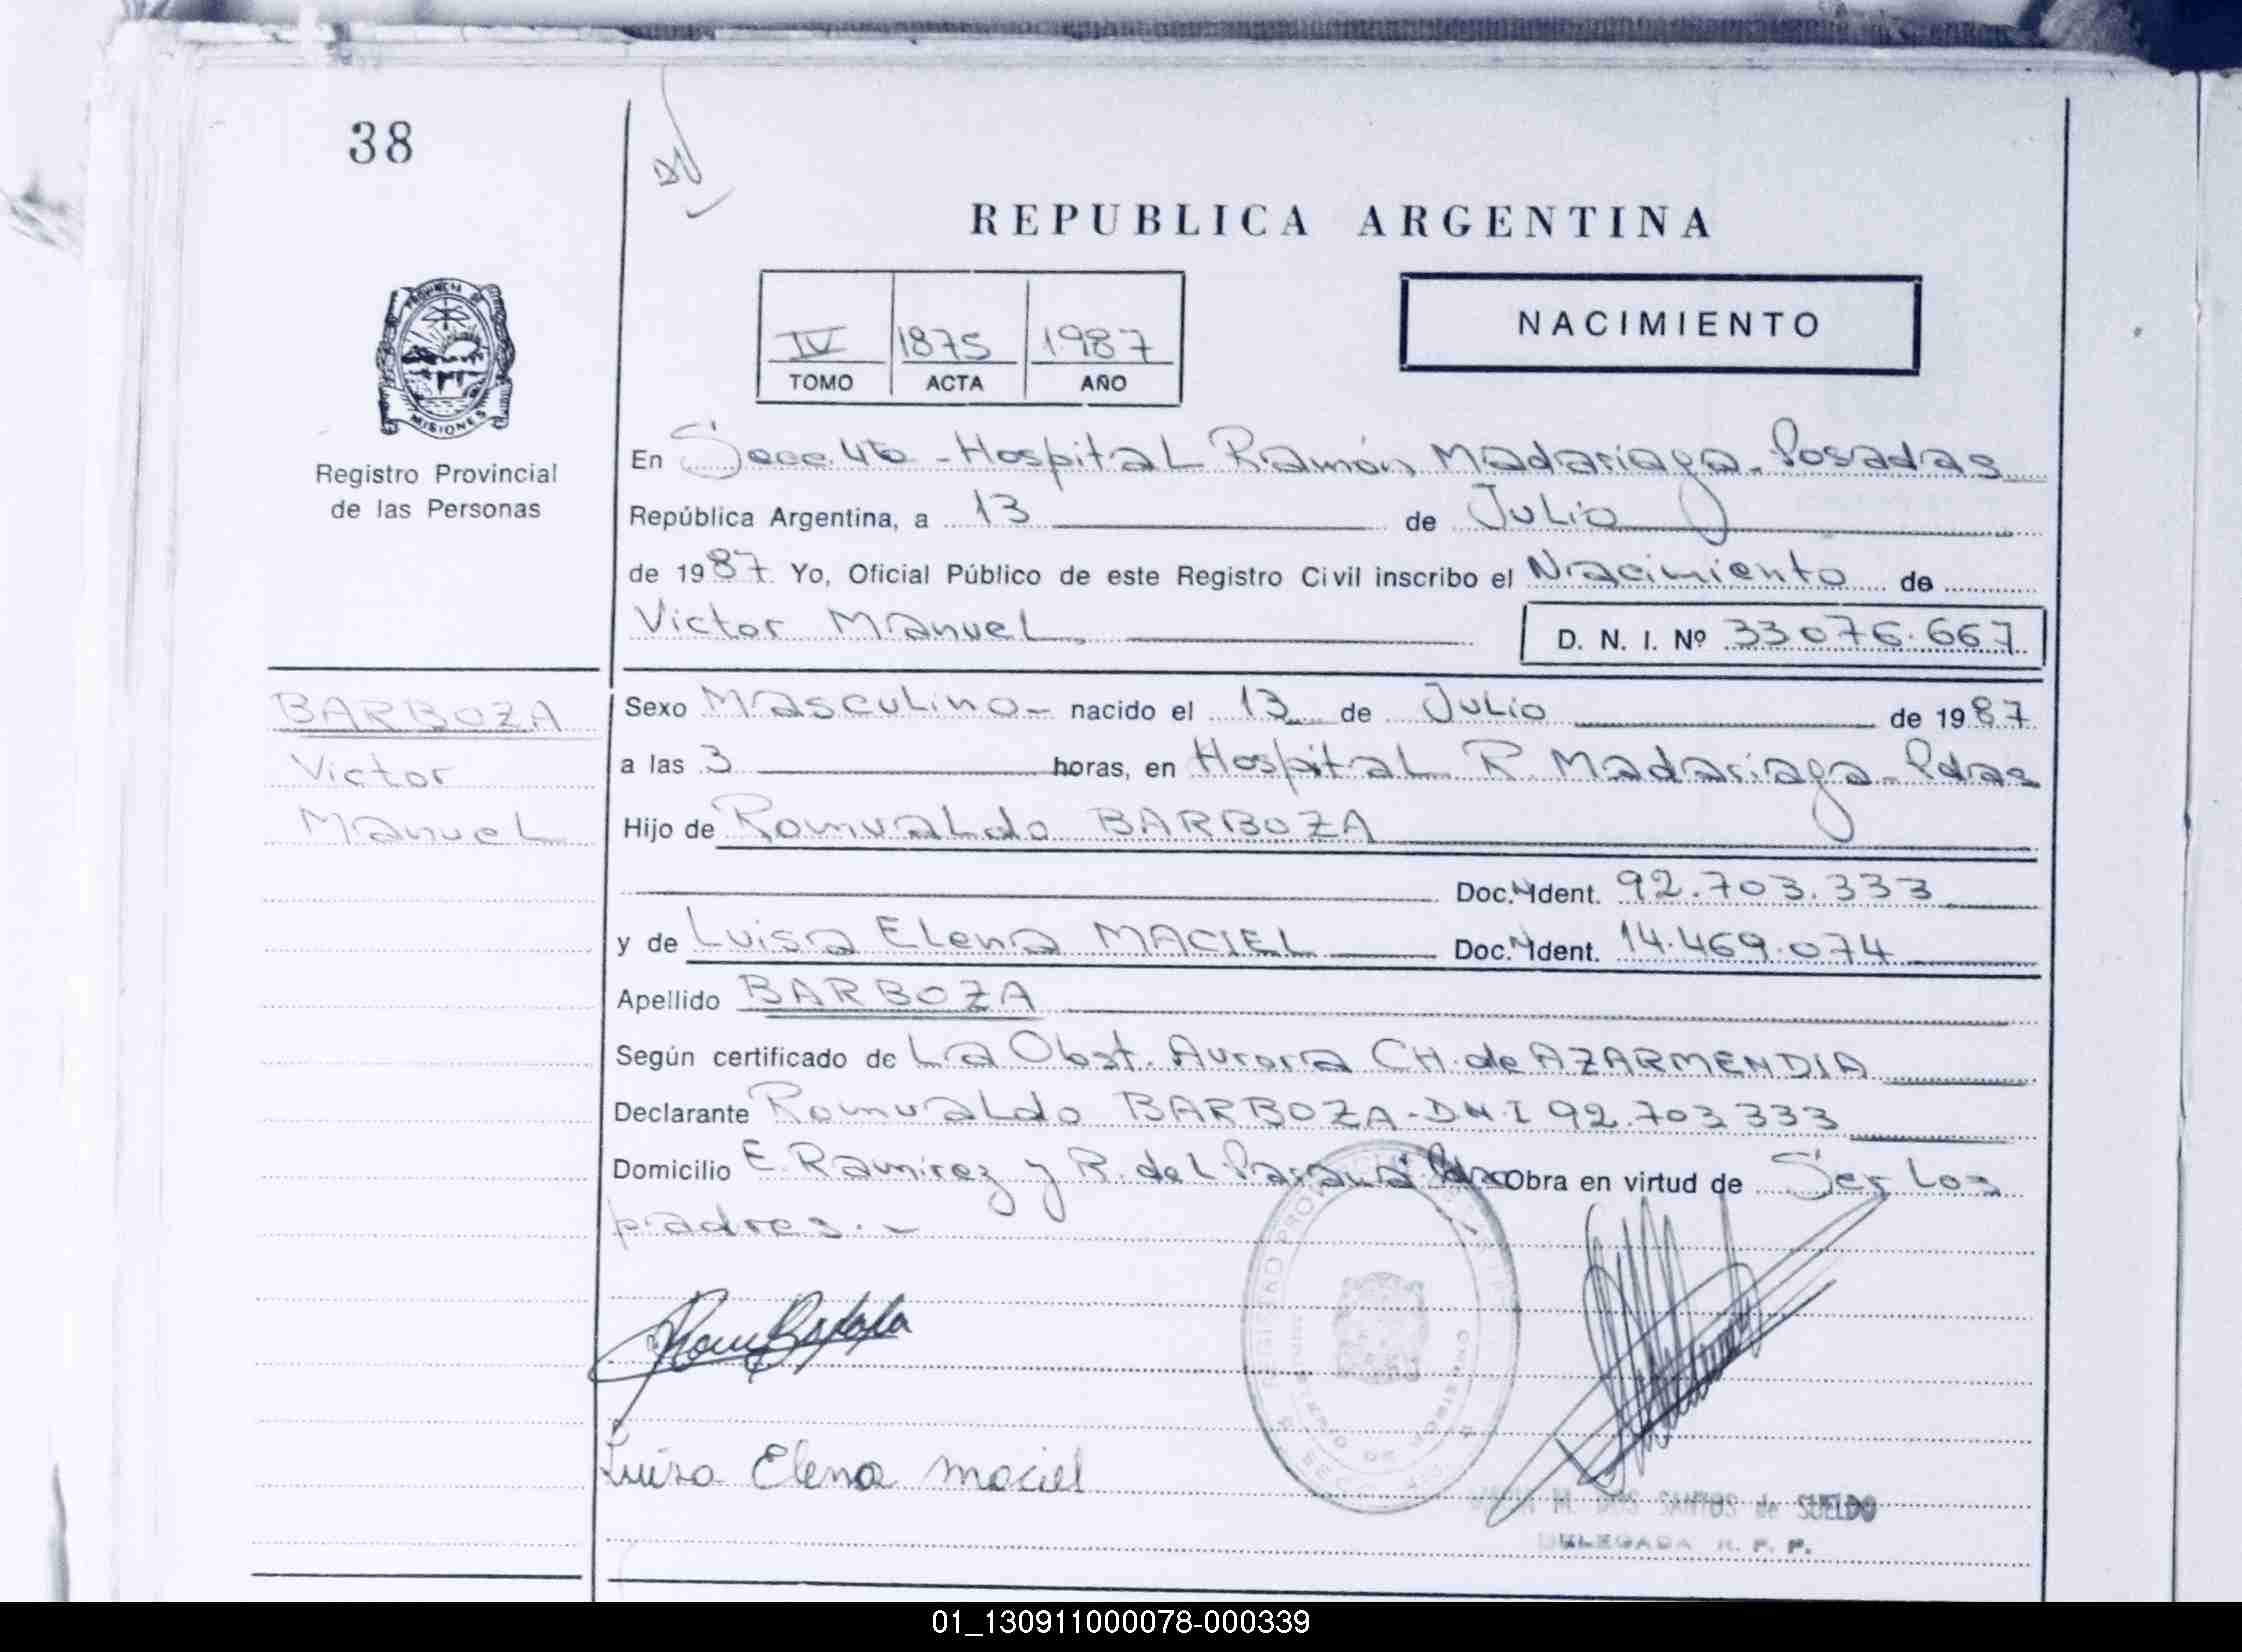 38
REPUBLICA ARGENTINA
IV 1875 1987
TOMO ACTA AÑO
NACIMIENTO
PROVINCIA DE
MISIONES
Registro Provincial
de las Personas
En Secc. 4ta - Hospital Ramón Madariaga - Posadas
República Argentina, a 13 de Julio
de 1987. Yo, Oficial Público de este Registro Civil inscribo el Nacimiento de
Victor Manuel, D. N. I. Nº 33076.667
BARBOZA
Victor
Manuel
Sexo Masculino - nacido el 13 de Julio de 1987
a las 3 horas, en Hospital R. Madariaga - Pdas
Hijo de Romualdo BARBOZA
Doc. N Ident. 92.703.333
y de Luisa Elena MACIEL Doc. N Ident. 14.469.074
Apellido BARBOZA
Según certificado de La Obst. Aurora CH. de AZARMENDIA
Declarante Romualdo BARBOZA - DNI 92.703333
Domicilio E. Ramirez y R. del Paraná Pdas Obra en virtud de Ser Los
padres. -
Luisa Elena Maciel
M. DOS SANTOS de SUELDO
DELEGADA R. P. P.
01_130911000078-000339